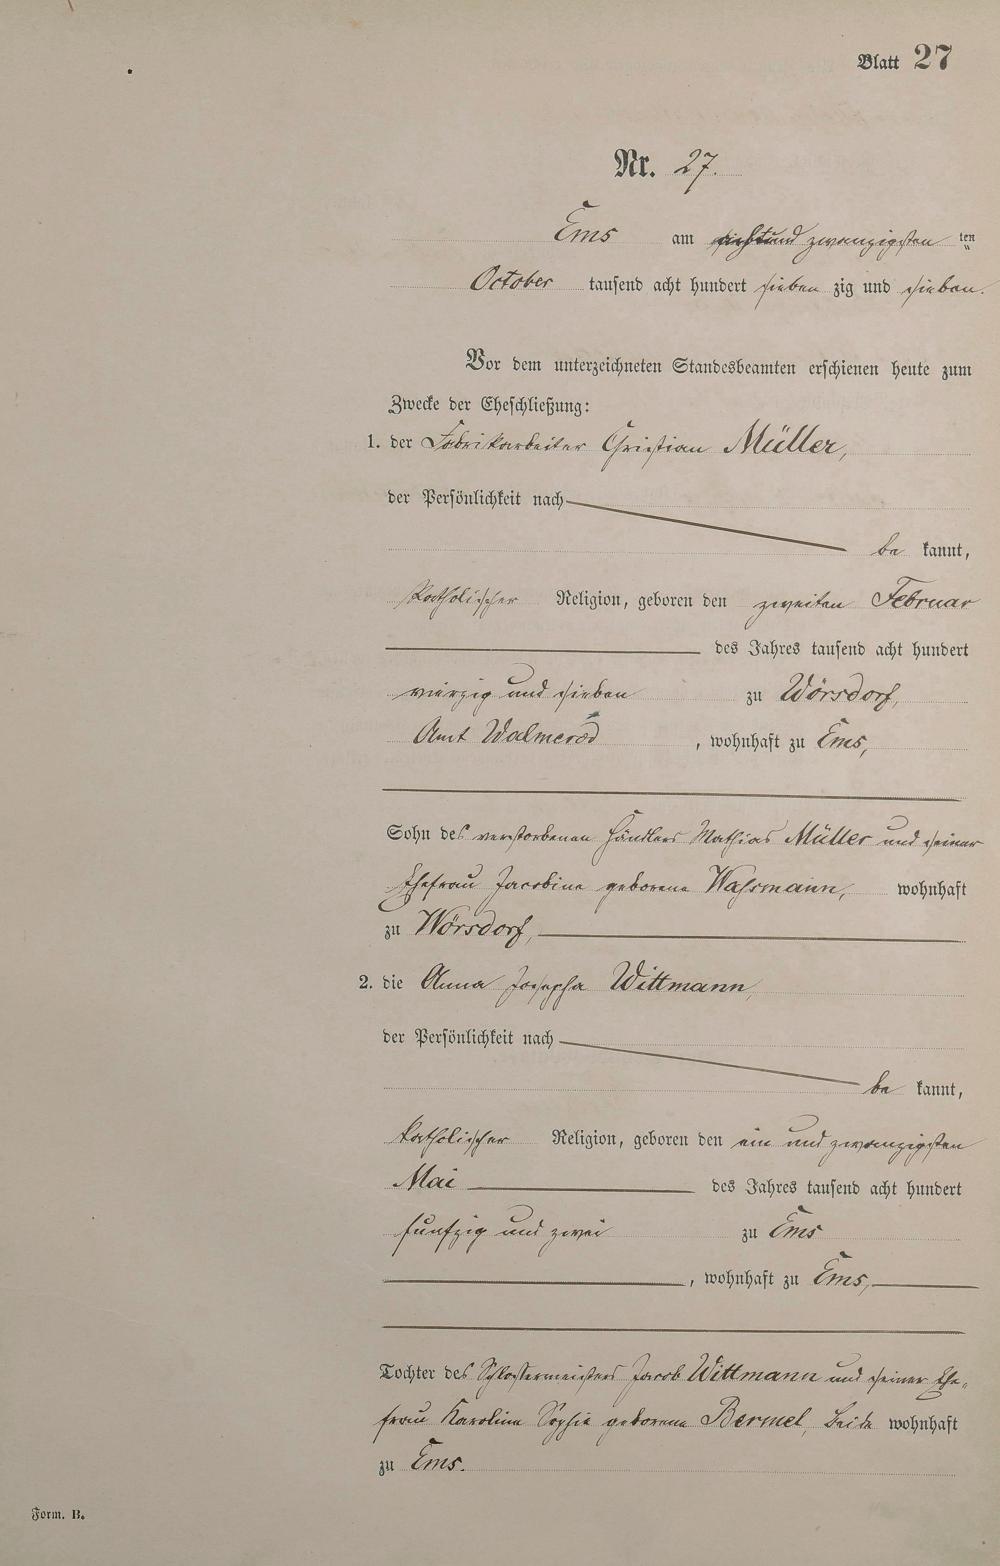 Blatt 27
Nr. 27.
Ems am und zwanzigsten ten
October tausend acht hundert sieben zig und sieben.
Vor dem unterzeichneten Standesbeamten erschienen heute zum
Zwecke der Eheschließung:
1. der Fabrikarbeiter Christian Müller,
der Persönlichkeit nach
be kannt,
katholischer Religion, geboren den zweiten Februar
des Jahres tausend acht hundert
vierzig und sieben zu Wörsdorf,
Amt Walmerod, wohnhaft zu Ems,
Sohn des verstorbenen Händlers Mathias Müller und seiner
Ehefrau Jacobine geborene Wassmann, wohnhaft
zu Wörsdorf,
2. die Anna Josepha Wittmann,
der Persönlichkeit nach
be kannt,
katholischer Religion, geboren den ein und zwanzigsten
Mai des Jahres tausend acht hundert
funfzig und zwei zu Ems
, wohnhaft zu Ems,
Tochter des Schlossermeisters Jacob Wittmann und seiner Ehe-
frau Karoline Sophie geborene Bermel, beide wohnhaft
zu Ems.
Form. B.